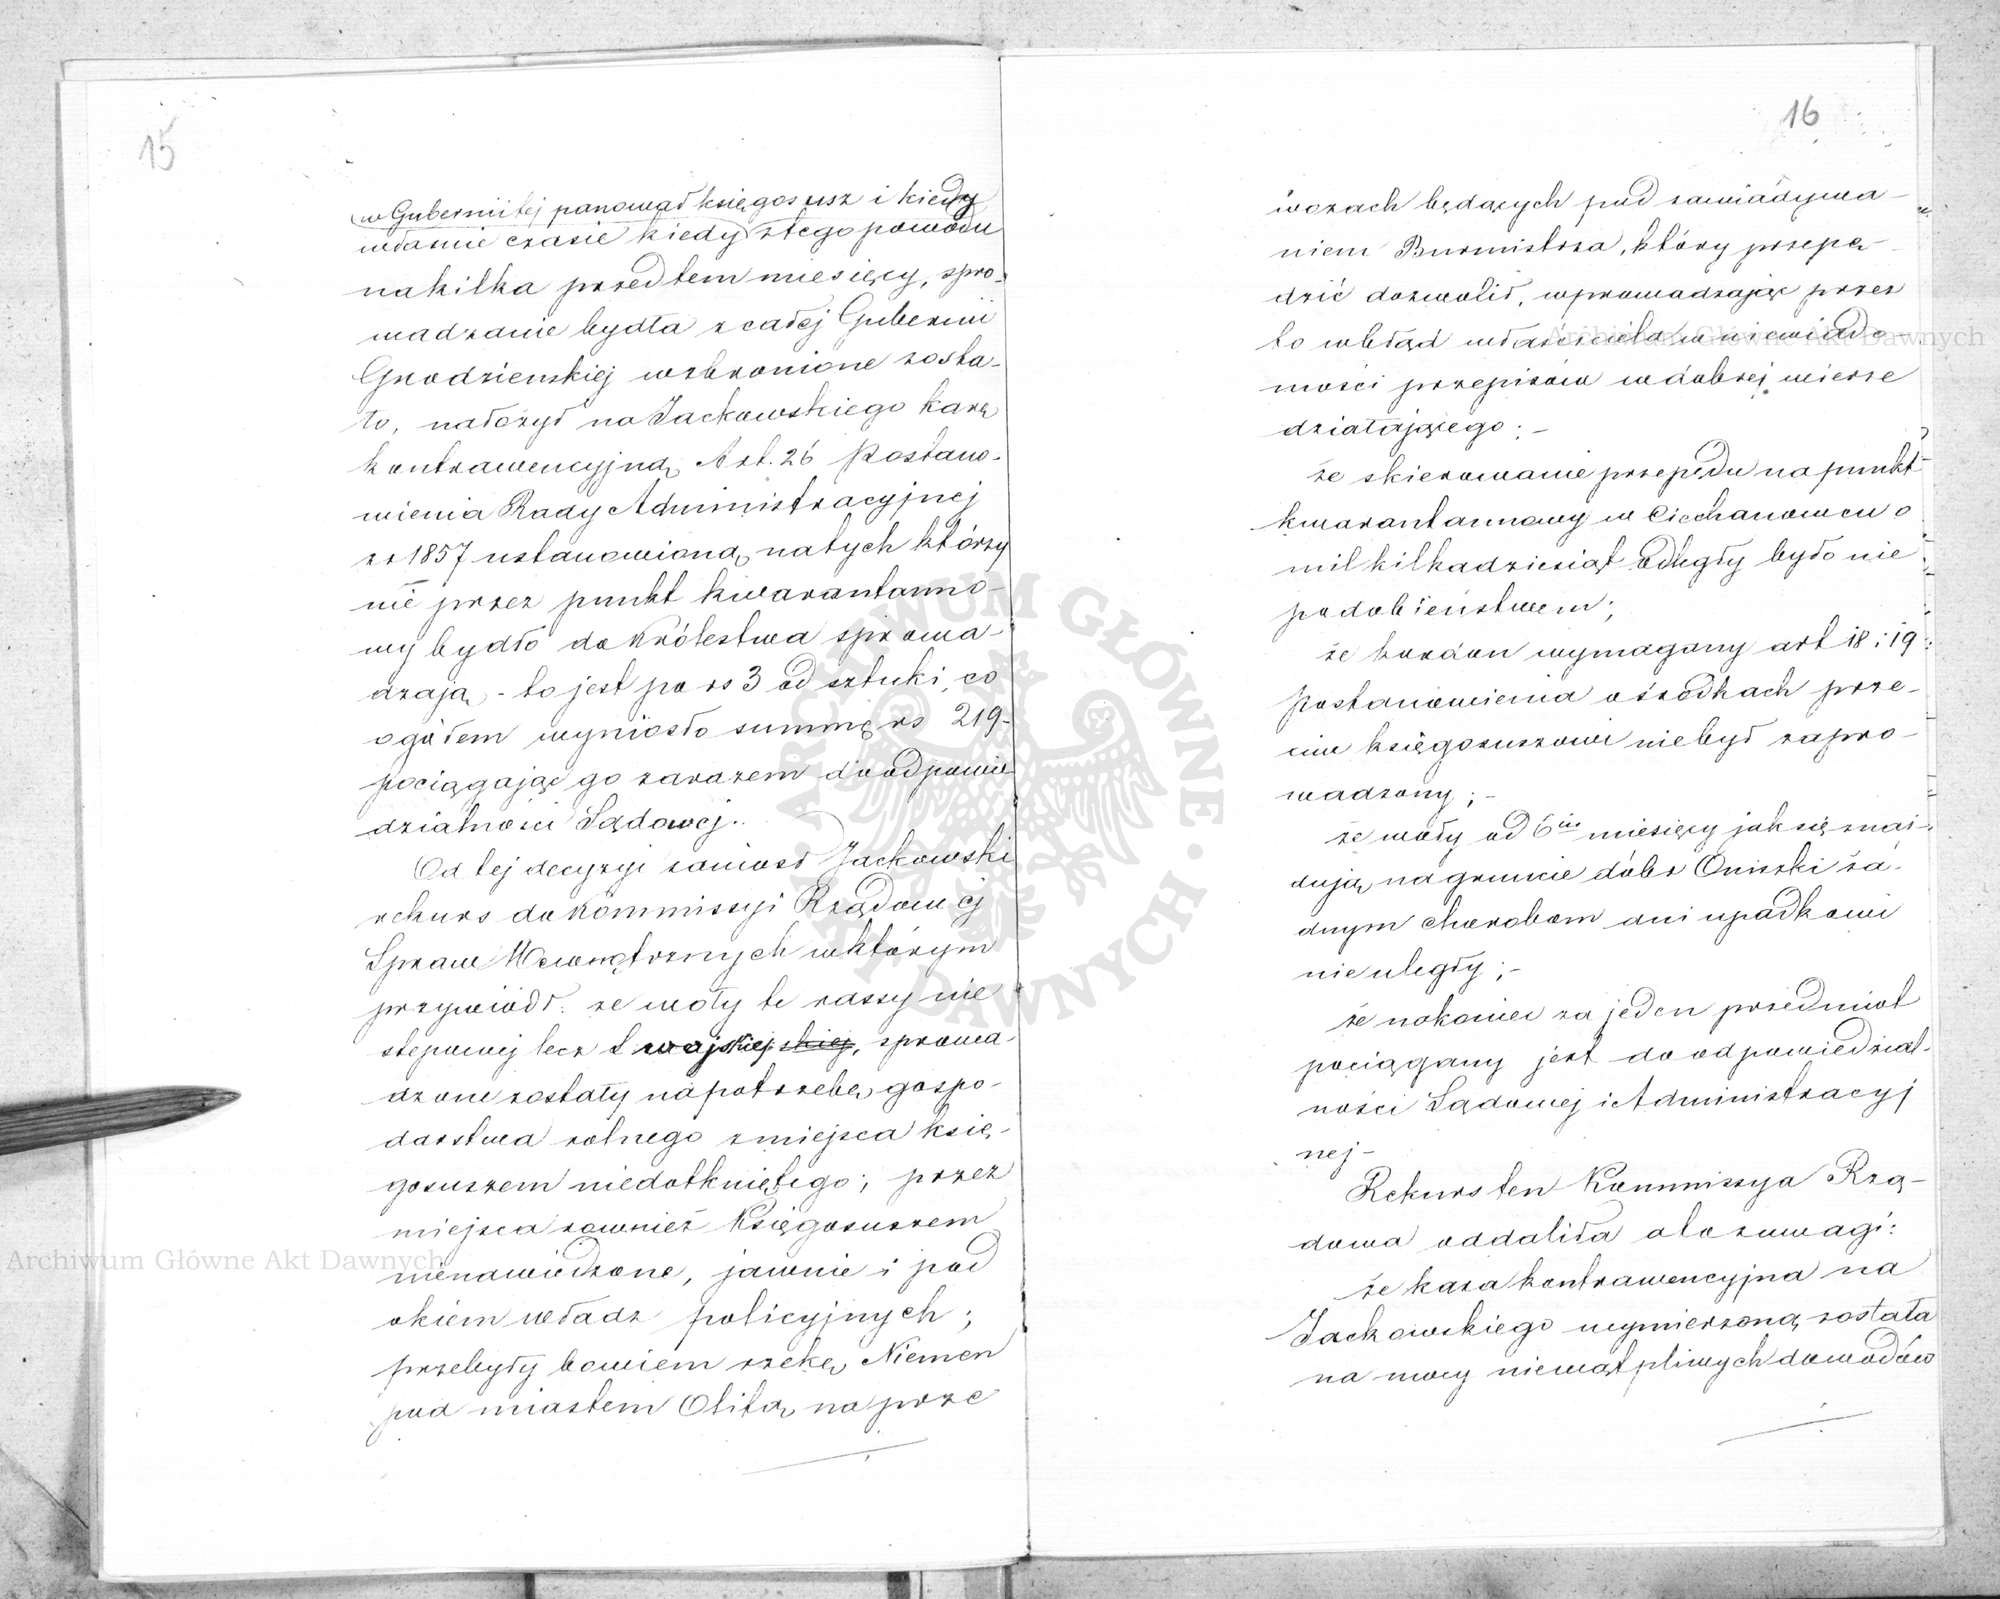 15
w Gubernii tej panował księgosusz i kiedy
właśnie czasie kiedy z tego powodu
na kilka przedtem miesięcy, spro-
wadzanie bydła z całej Gubernii
Grodzieńskiej wzbronione zosta-
ło, nałożył na Jackowskiego karę
kontrawencyjną Art. 26 Postano-
wienia Rady Administracyjnej
z r 1857 ustanowioną na tych którzy
nie przez punkt kwarantanno-
wy bydło do Królestwa sprowa-
dzają, - to jest po rs 3 od sztuki, co
ogółem wyniosło summę rs 219-
pociągając go zarazem do odpowie-
dzialności Sądowej.
Od tej decyzyi zaniosł Jackowski
rekurs do Kommissyi Rządowej
Spraw Wewnętrznych w którym
przywiódł: że woły te rassy nie
stepowej lecz swojskiej, sprowa-
dzone zostały na potrzebę gospo-
darstwa rolnego z miejsca księ-
gosuszem niedotkniętego; przez
miejsca rownież Księgosuszem
nienawiedzone, jawnie i pod
okiem władz policyjnych;
przebyły bowiem rzekę Niemen
pod miastem Olitą na prze
16
wozach będących pod zawiadywa-
niem Burmistrza, który przepę-
dzić dozwolił, wprowadzając przez
to w błąd właściciela w niewiado-
mości przepisów w dobrej wierze
działającego; -
że skierowanie przepędu na punkt
kwarantannowy w Ciechanowcu o
mil kilkadziesiąt odległy było nie
podobieństwem;
że kordon wymagany art 18 i 19
Postanowienia o środkach prze-
ciw księgosuszowi niebył zapro-
wadzony; -
że woły od 6iu miesięcy jak się znaj-
dują na gruncie dóbr Oniszki ża-
dnym chorobom ani upadkowi
nie uległy; -
że nakoniec za jeden przedmiot
pociągany jest do odpowiedzial-
ności Sądowej i Administracyj
nej -
Rekurs ten Kommissya Rzą-
dowa oddaliła a to z uwagi:
że kara kontrawencyjna na
Jackowskiego wymierzoną została
na mocy niewątpliwych dowodów
Archiwum Główne Akt Dawnych
Archiwum Główne Akt Dawnych
ARCHIWUM GŁÓWNE AKT DAWNYCH